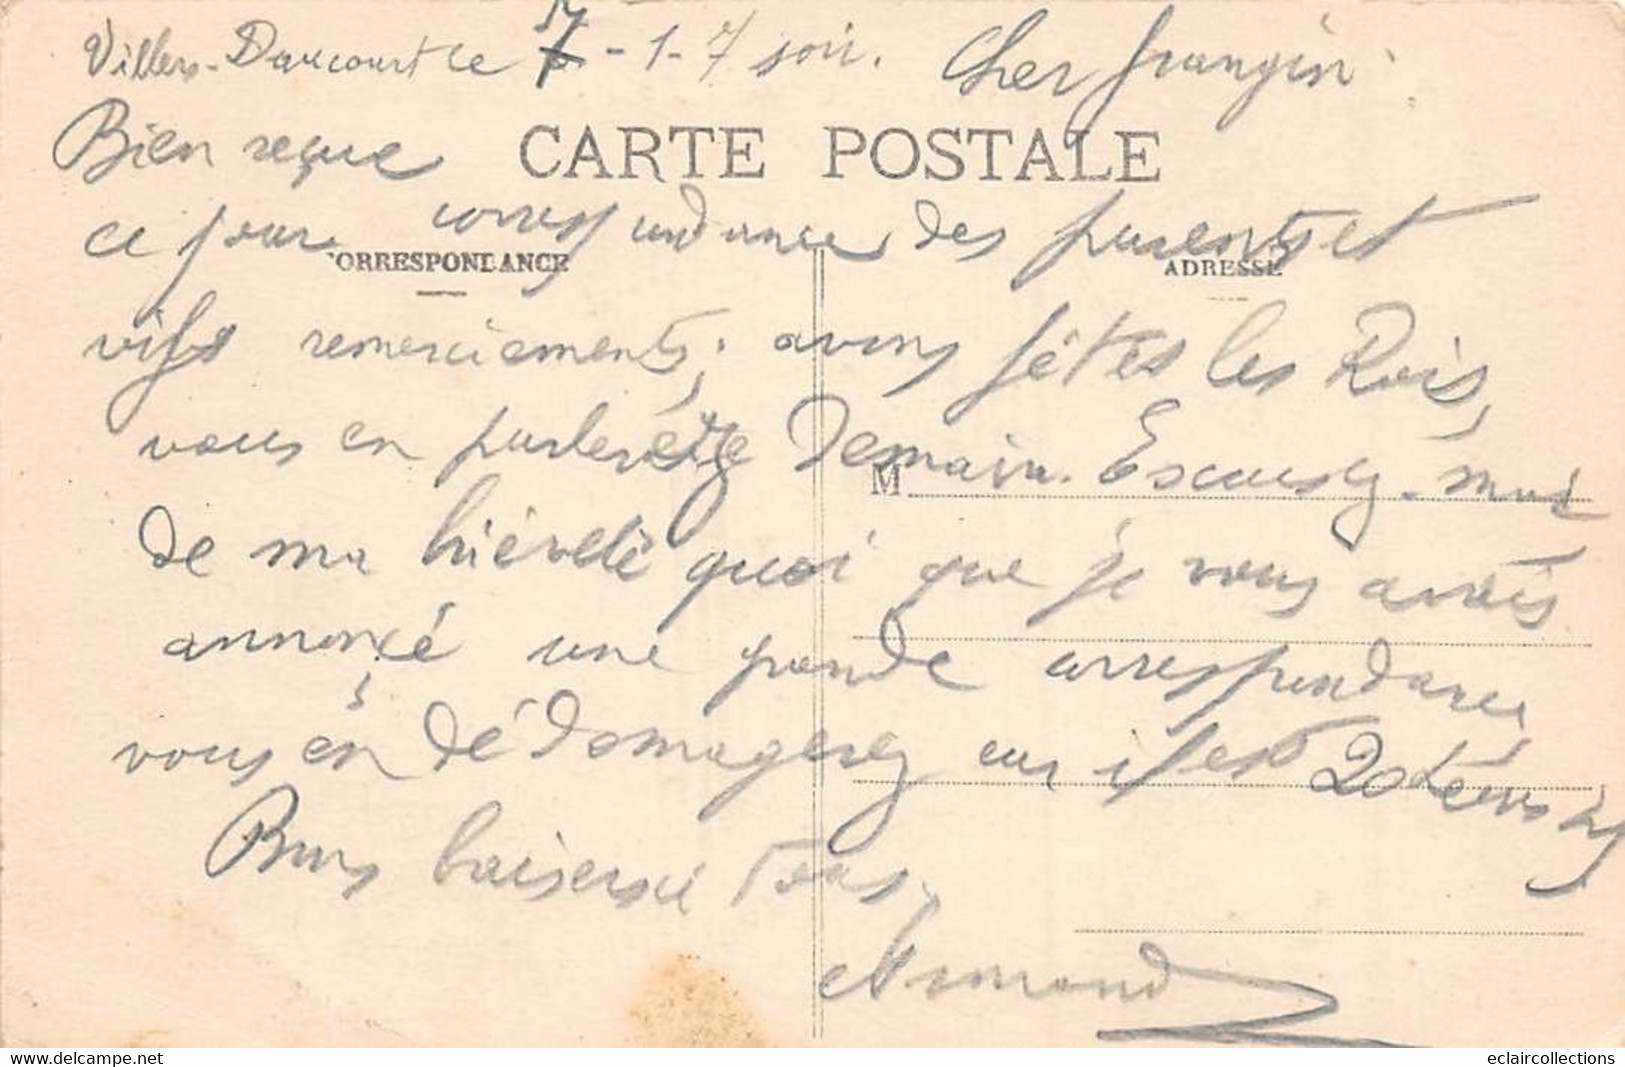 Villers-Daucourt le 7-1-7 soir. Cher frangin.
Bien reçue
CARTE POSTALE
ce jour correspondance des parents et
CORRESPONDANCE
ADRESSE
vifs remerciements; avons fêtés les Rois,
vous en parlerai demain. Excusez-moi
M
de ma brièveté quoi que je vous avais
annoncé une grande correspondance,
vous en dédomagerez car il est 20h
Bons baisers à tous.
Armand
delcampe.net
eclaircollections